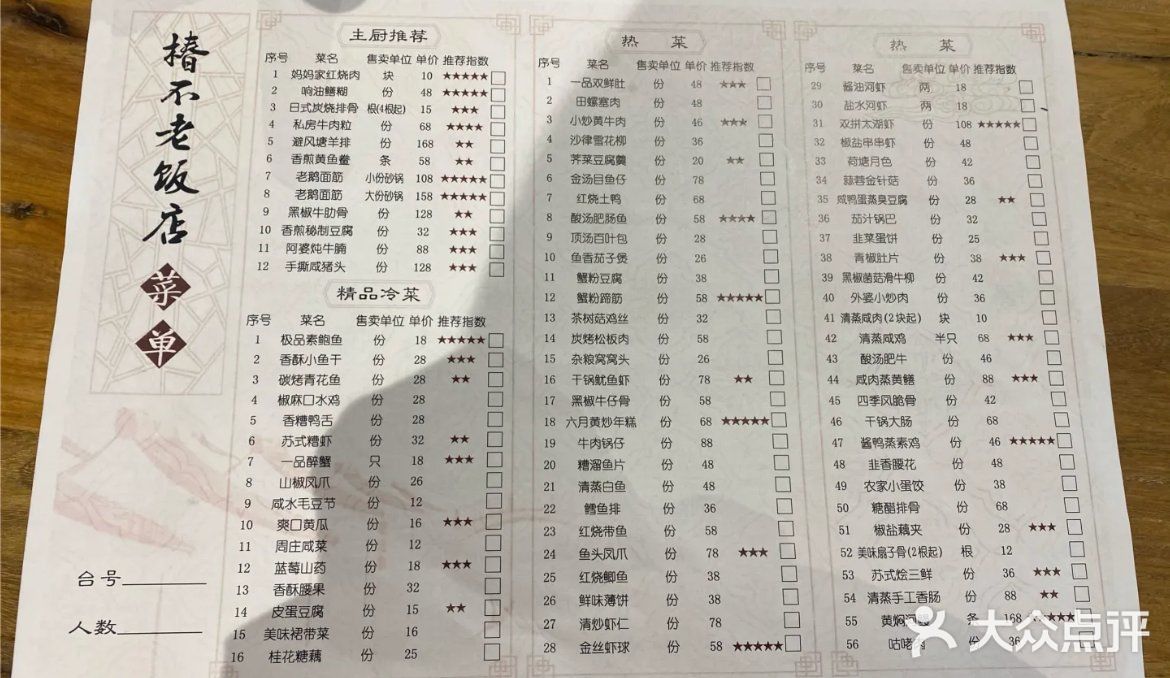 椿不老饭店
菜单
台号
人数
主厨推荐
序号 菜名 售卖单位 单价 推荐指数
1 妈妈家红烧肉 块 10 ★★★★★
2 响油鳝糊 份 48 ★★★★★
3 日式炭烧排骨 根(4根起) 15 ★★★
4 私房牛肉粒 份 68 ★★★★
5 避风塘羊排 份 168 ★★
6 香煎黄鱼鲞 条 58 ★★
7 老鹅面筋 小份砂锅 108 ★★★★★
8 老鹅面筋 大份砂锅 158 ★★★★★
9 黑椒牛肋骨 份 128 ★★
10 香煎秘制豆腐 份 32 ★★★
11 阿婆炖牛腩 份 88 ★★★
12 手撕咸猪头 份 128 ★★★
精品冷菜
序号 菜名 售卖单位 单价 推荐指数
1 极品素鲍鱼 份 18 ★★★★★
2 香酥小鱼干 份 28 ★★★
3 碳烤青花鱼 份 28 ★★
4 椒麻口水鸡 份 28
5 香糟鸭舌 份 28
6 苏式糟虾 份 32 ★★
7 一品醉蟹 只 18 ★★★
8 山椒凤爪 份 26
9 咸水毛豆节 份 12
10 爽口黄瓜 份 16 ★★★
11 周庄咸菜 份 12
12 蓝莓山药 份 18 ★★★
13 香酥腰果 份 32
14 皮蛋豆腐 份 15 ★★
15 美味裙带菜 份 16
16 桂花糖藕 份 25
热 菜
序号 菜名 售卖单位 单价 推荐指数
1 一品双鲜肚 份 48 ★★★
2 田螺塞肉 份 48
3 小炒黄牛肉 份 46 ★★★
4 沙律雪花柳 份 36
5 荠菜豆腐羹 份 20 ★★
6 金汤目鱼仔 份 78
7 红烧土鸭 份 68
8 酸汤肥肠鱼 份 58 ★★★★
9 顶汤百叶包 份 28
10 鱼香茄子煲 份 26
11 蟹粉豆腐 份 38
12 蟹粉蹄筋 份 58 ★★★★★
13 茶树菇鸡丝 份 32
14 炭烤松板肉 份 58
15 杂粮窝窝头 份 26
16 干锅鱿鱼虾 份 78 ★★
17 黑椒牛仔骨 份 58
18 六月黄炒年糕 份 68 ★★★★★
19 牛肉锅仔 份 88
20 糟溜鱼片 份 48
21 清蒸白鱼 份 48
22 鳕鱼排 份 36
23 红烧带鱼 份 58
24 鱼头凤爪 份 78 ★★★
25 红烧鲫鱼 份 38
26 鲜味薄饼 份 38
27 清炒虾仁 份 78
28 金丝虾球 份 58 ★★★★★
热 菜
序号 菜名 售卖单位 单价 推荐指数
29 酱油河虾 两 18
30 盐水河虾 两 18
31 双拼太湖虾 份 108 ★★★★★
32 椒盐串串虾 份 48
33 荷塘月色 份 42
34 蒜蓉金针菇 份 36
35 咸鸭蛋蒸臭豆腐 份 28 ★★
36 茄汁锅巴 份 32
37 韭菜蛋饼 份 25
38 青椒肚片 份 38 ★★★
39 黑椒菌菇滑牛柳 份 42
40 外婆小炒肉 份 36
41 清蒸咸肉(2块起) 块 10
42 清蒸咸鸡 半只 68 ★★★
43 酸汤肥牛 份 46
44 咸肉蒸黄鳝 份 88 ★★★
45 四季风脆骨 份 42
46 干锅大肠 份 68
47 酱鸭蒸素鸡 份 46 ★★★★★
48 韭香腰花 份 48
49 农家小蛋饺 份 38
50 糖醋排骨 份 68
51 椒盐藕夹 份 28 ★★★
52 美味扇子骨(2根起) 根 12
53 苏式烩三鲜 份 36 ★★★
54 清蒸手工香肠 份 88 ★★
55 黄焖河 条 168 ★★★
56 咕咾肉 份 36
大众点评